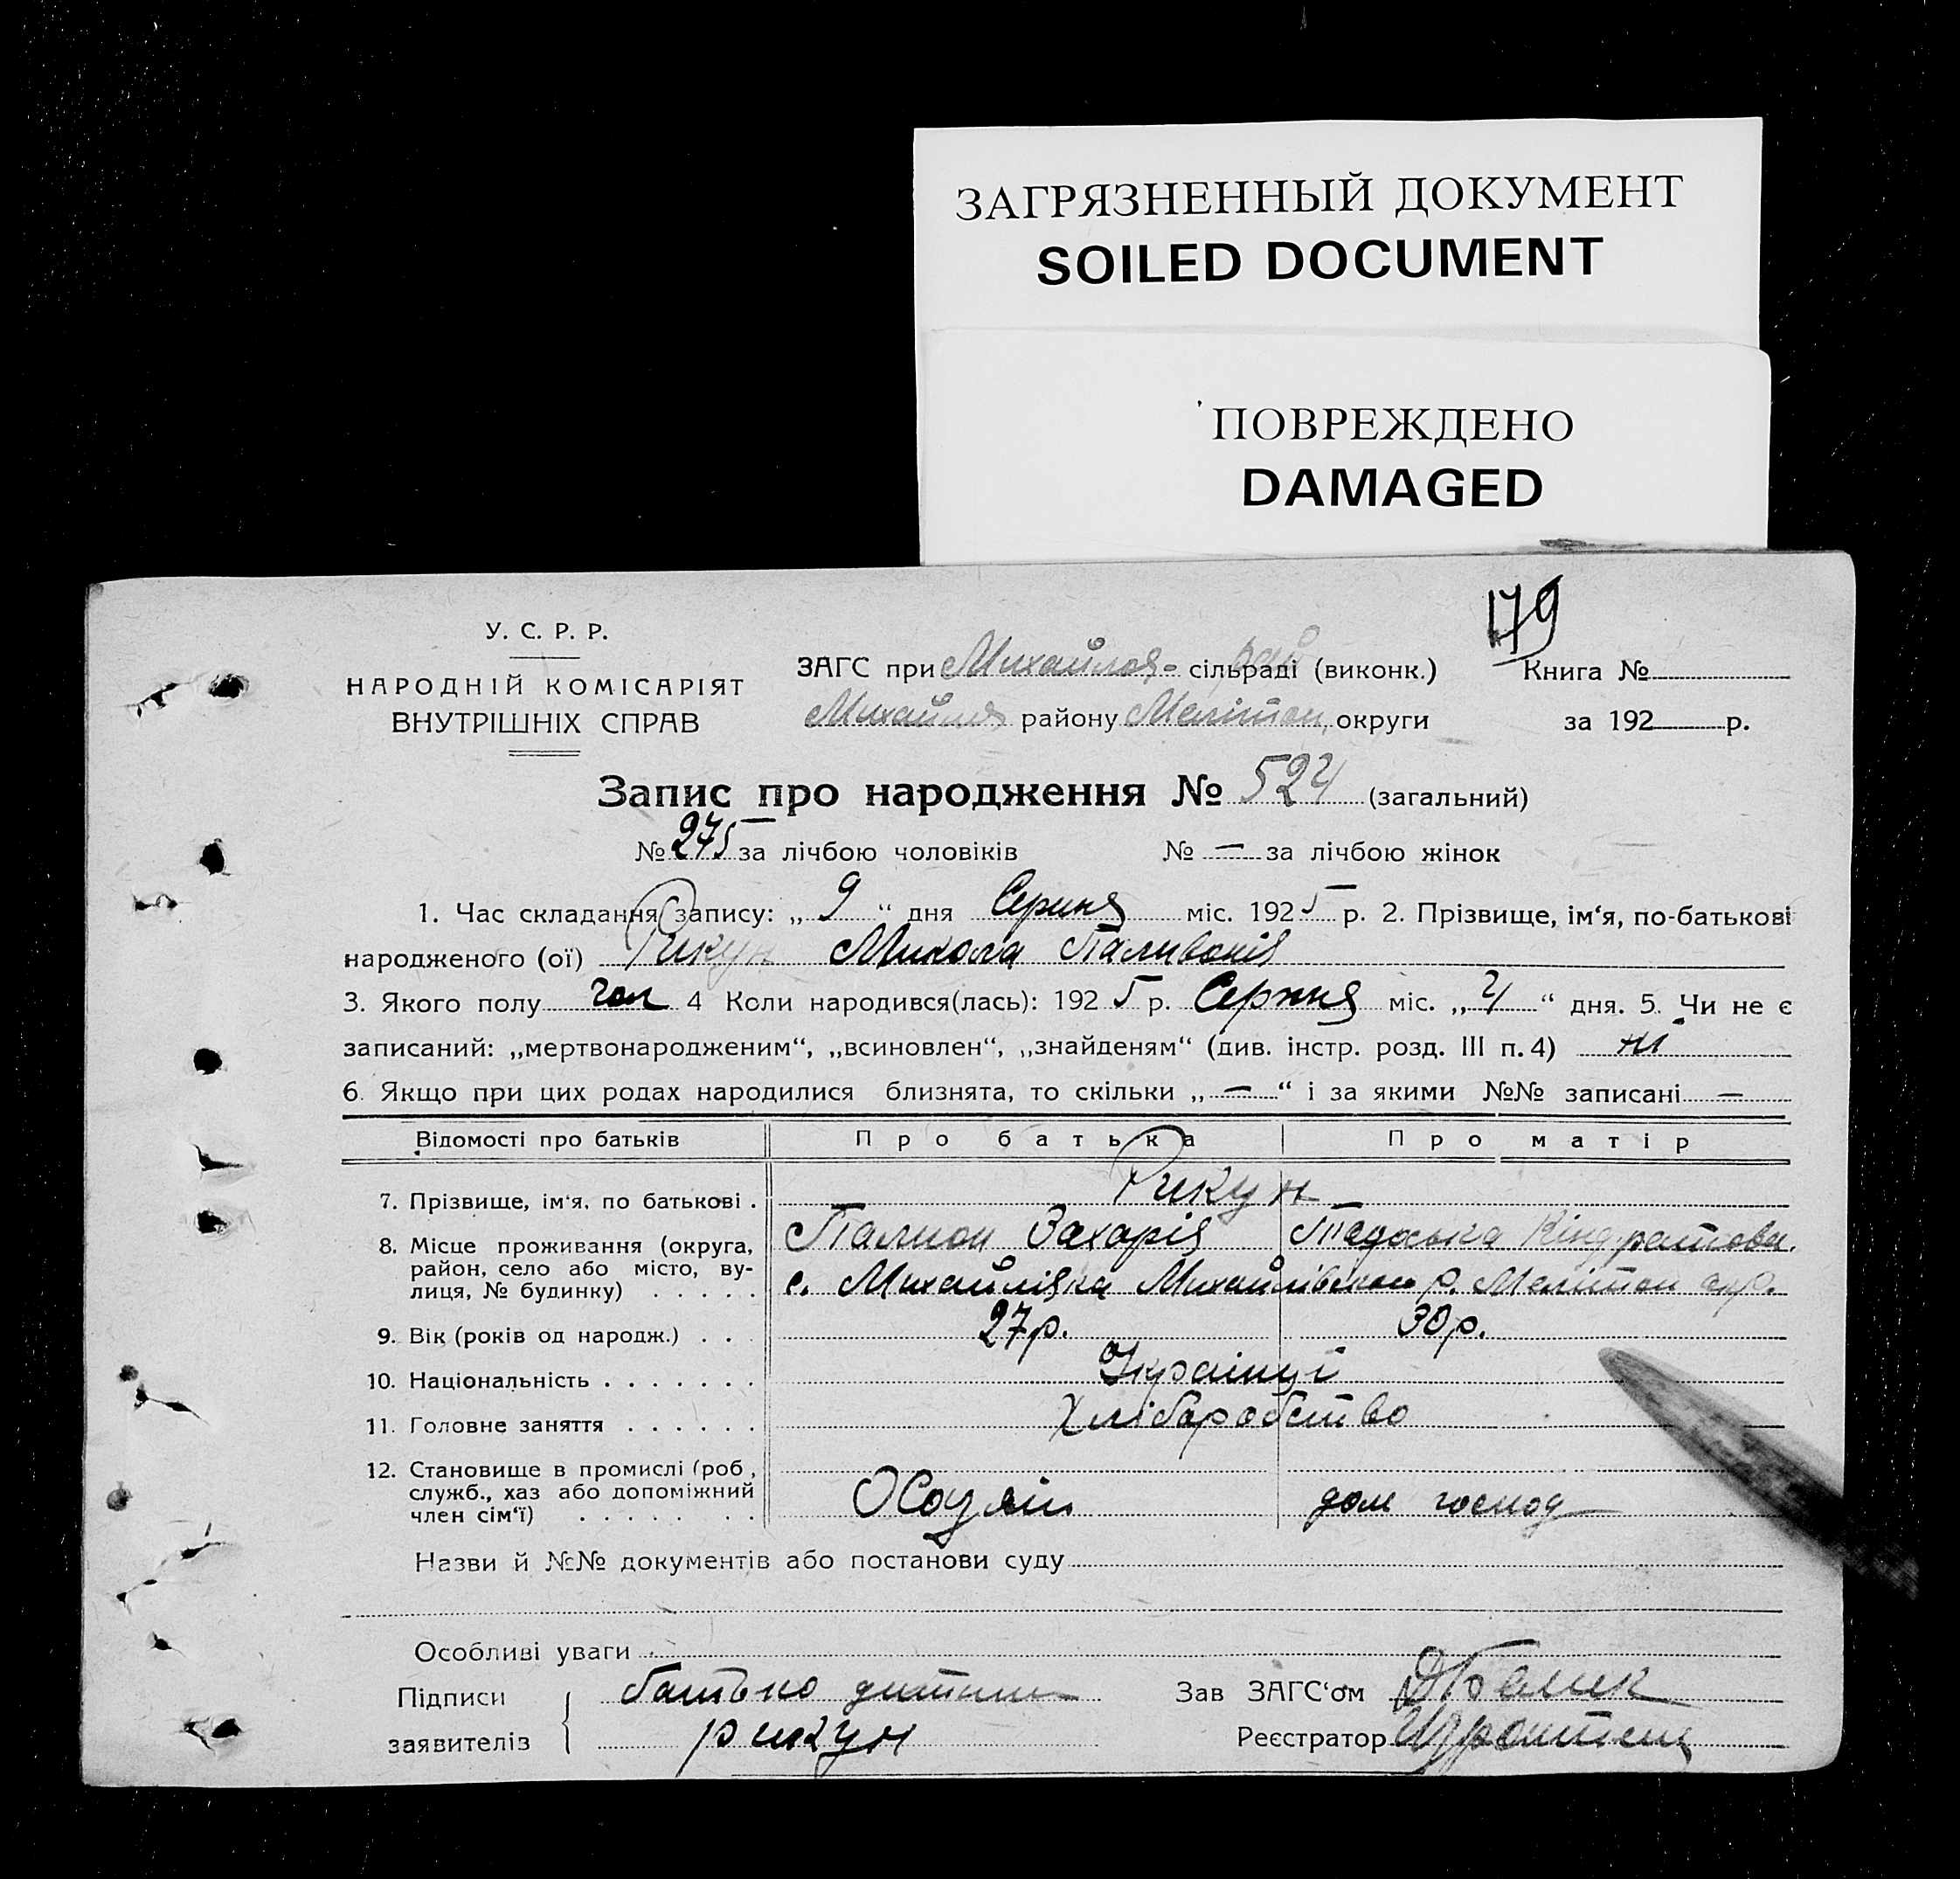 ЗАГРЯЗНЕННЫЙ ДОКУМЕНТ
SOILED DOCUMENT
ПОВРЕЖДЕНО
DAMAGED
179
У. С. Р. Р.
НАРОДНІЙ КОМІСАРІЯТ
ВНУТРІШНІХ СПРАВ
ЗАГС при Михайлов- сільраді (виконк.)
Михайлов району Мелітоп. округи
Книга №
за 192 р.
Запис про народження № 524 (загальний)
№ 275 за лічбою чоловіків № — за лічбою жінок
1. Час складання запису: „ 9 “ дня Серпня міс. 1925 р. 2. Прізвище, ім‘я, по-батькові
народженого (ої) Рикун Микола
3. Якого полу чол 4 Коли народився(лась): 1925 р. Серпня міс. „ 4 “ дня. 5. Чи не є
записаний: „мертвонародженим“, „всиновлен“, „знайденям“ (див. інстр. розд. III п. 4) ні
6. Якщо при цих родах народилися близнята, то скільки „ — “ і за якими №№ записані —
Відомості про батьків Про батька Про матір
7. Прізвище, ім‘я, по батькові . Рикун
Захарів Кіндратова.
8. Місце проживання (округа, район, село або місто, вулиця, № будинку) . . . . . с. Михайлівка Михайлівськ р. Мелітоп окр.
9. Вік (років од народж.) . . . 27 р. 30 р.
10. Національність . . . . . . . Українці
11. Головне заняття . . . . . . Хліборобство
12. Становище в промислі (роб, служб., хаз або допоміжний член сім‘ї) . . . . . . . дом господ
Назви й №№ документів або постанови суду
Особливі уваги
Підписи заявителів батько дитини
рикун
Зав ЗАГС‘ом
Реєстратор